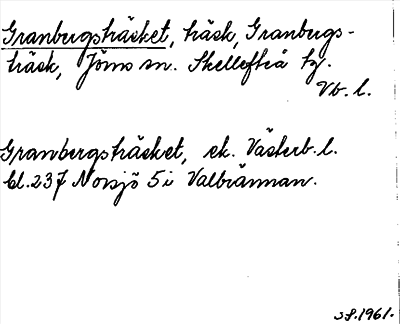 Granbergsträsket, träsk, Granbergs-
träsk, Jörns sn. Skellefteå tg.
Vb. l.
Granbergsträsket, ek. Västerb. l.
bl. 237 Norsjö 5i Valbrännan.
1961.